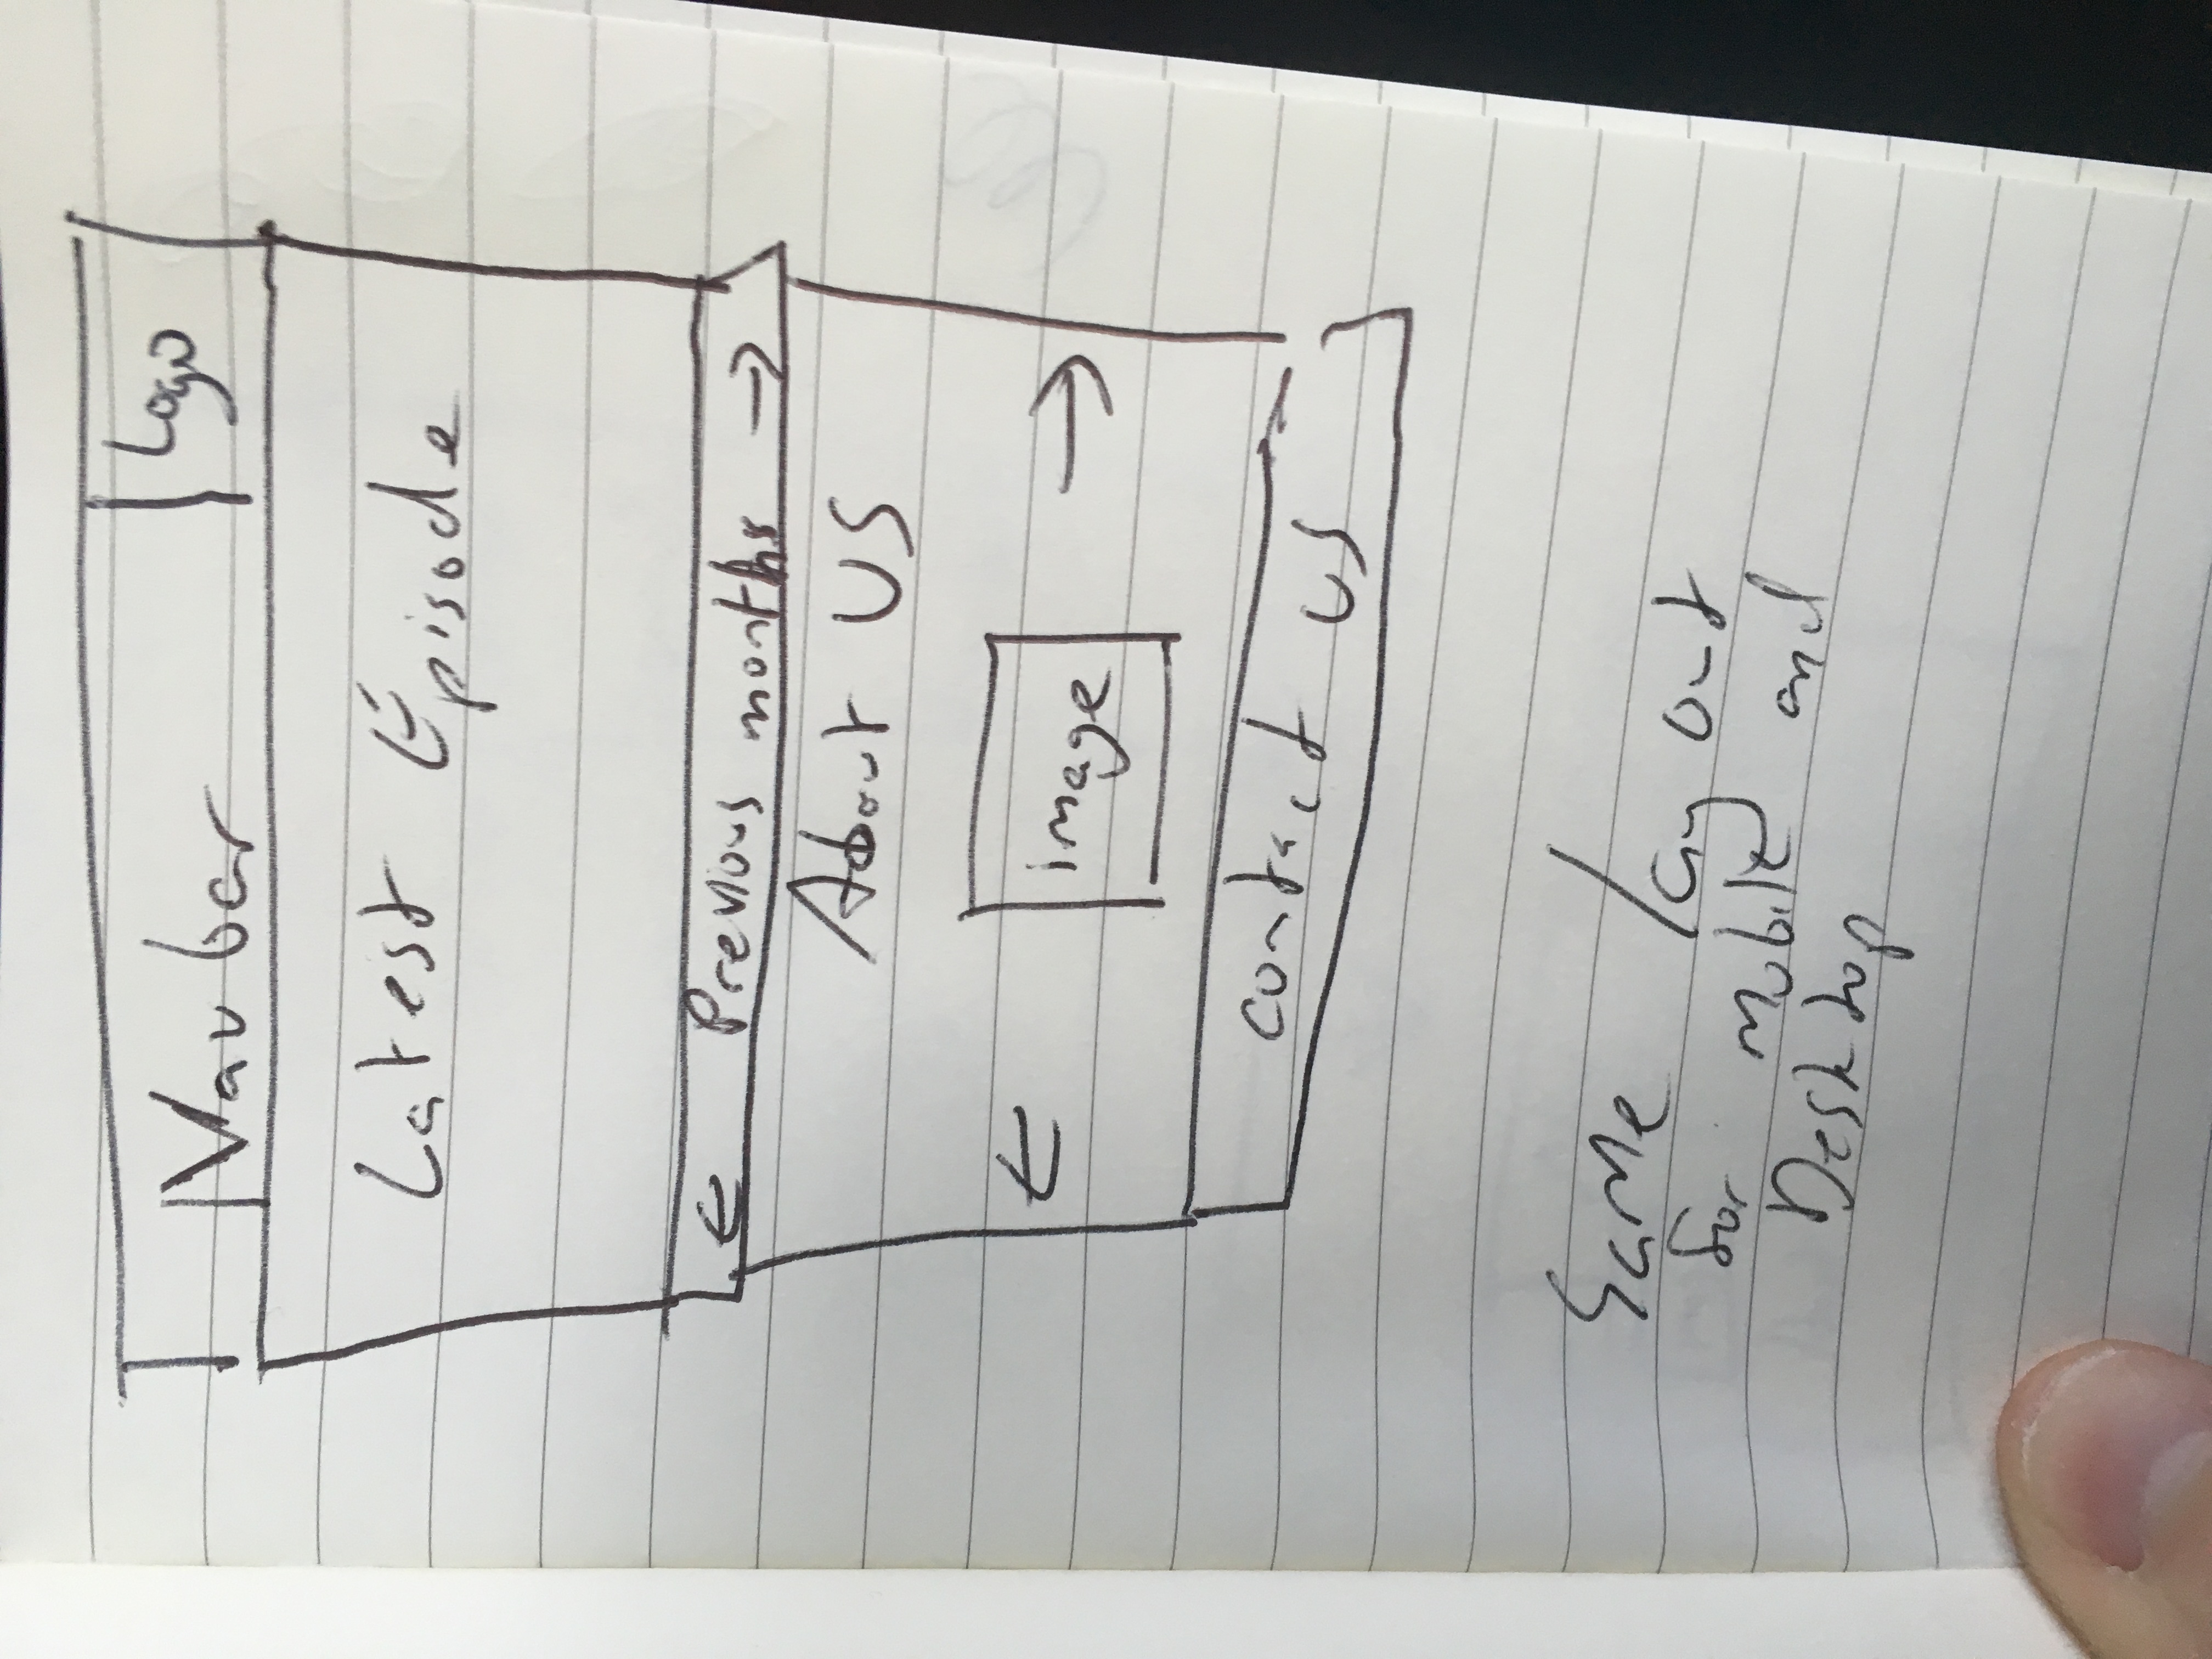 Navbar
Logo
Latest Episode
← Previous months →
About US
← image →
contact us
Same layout
for mobile and
Desktop